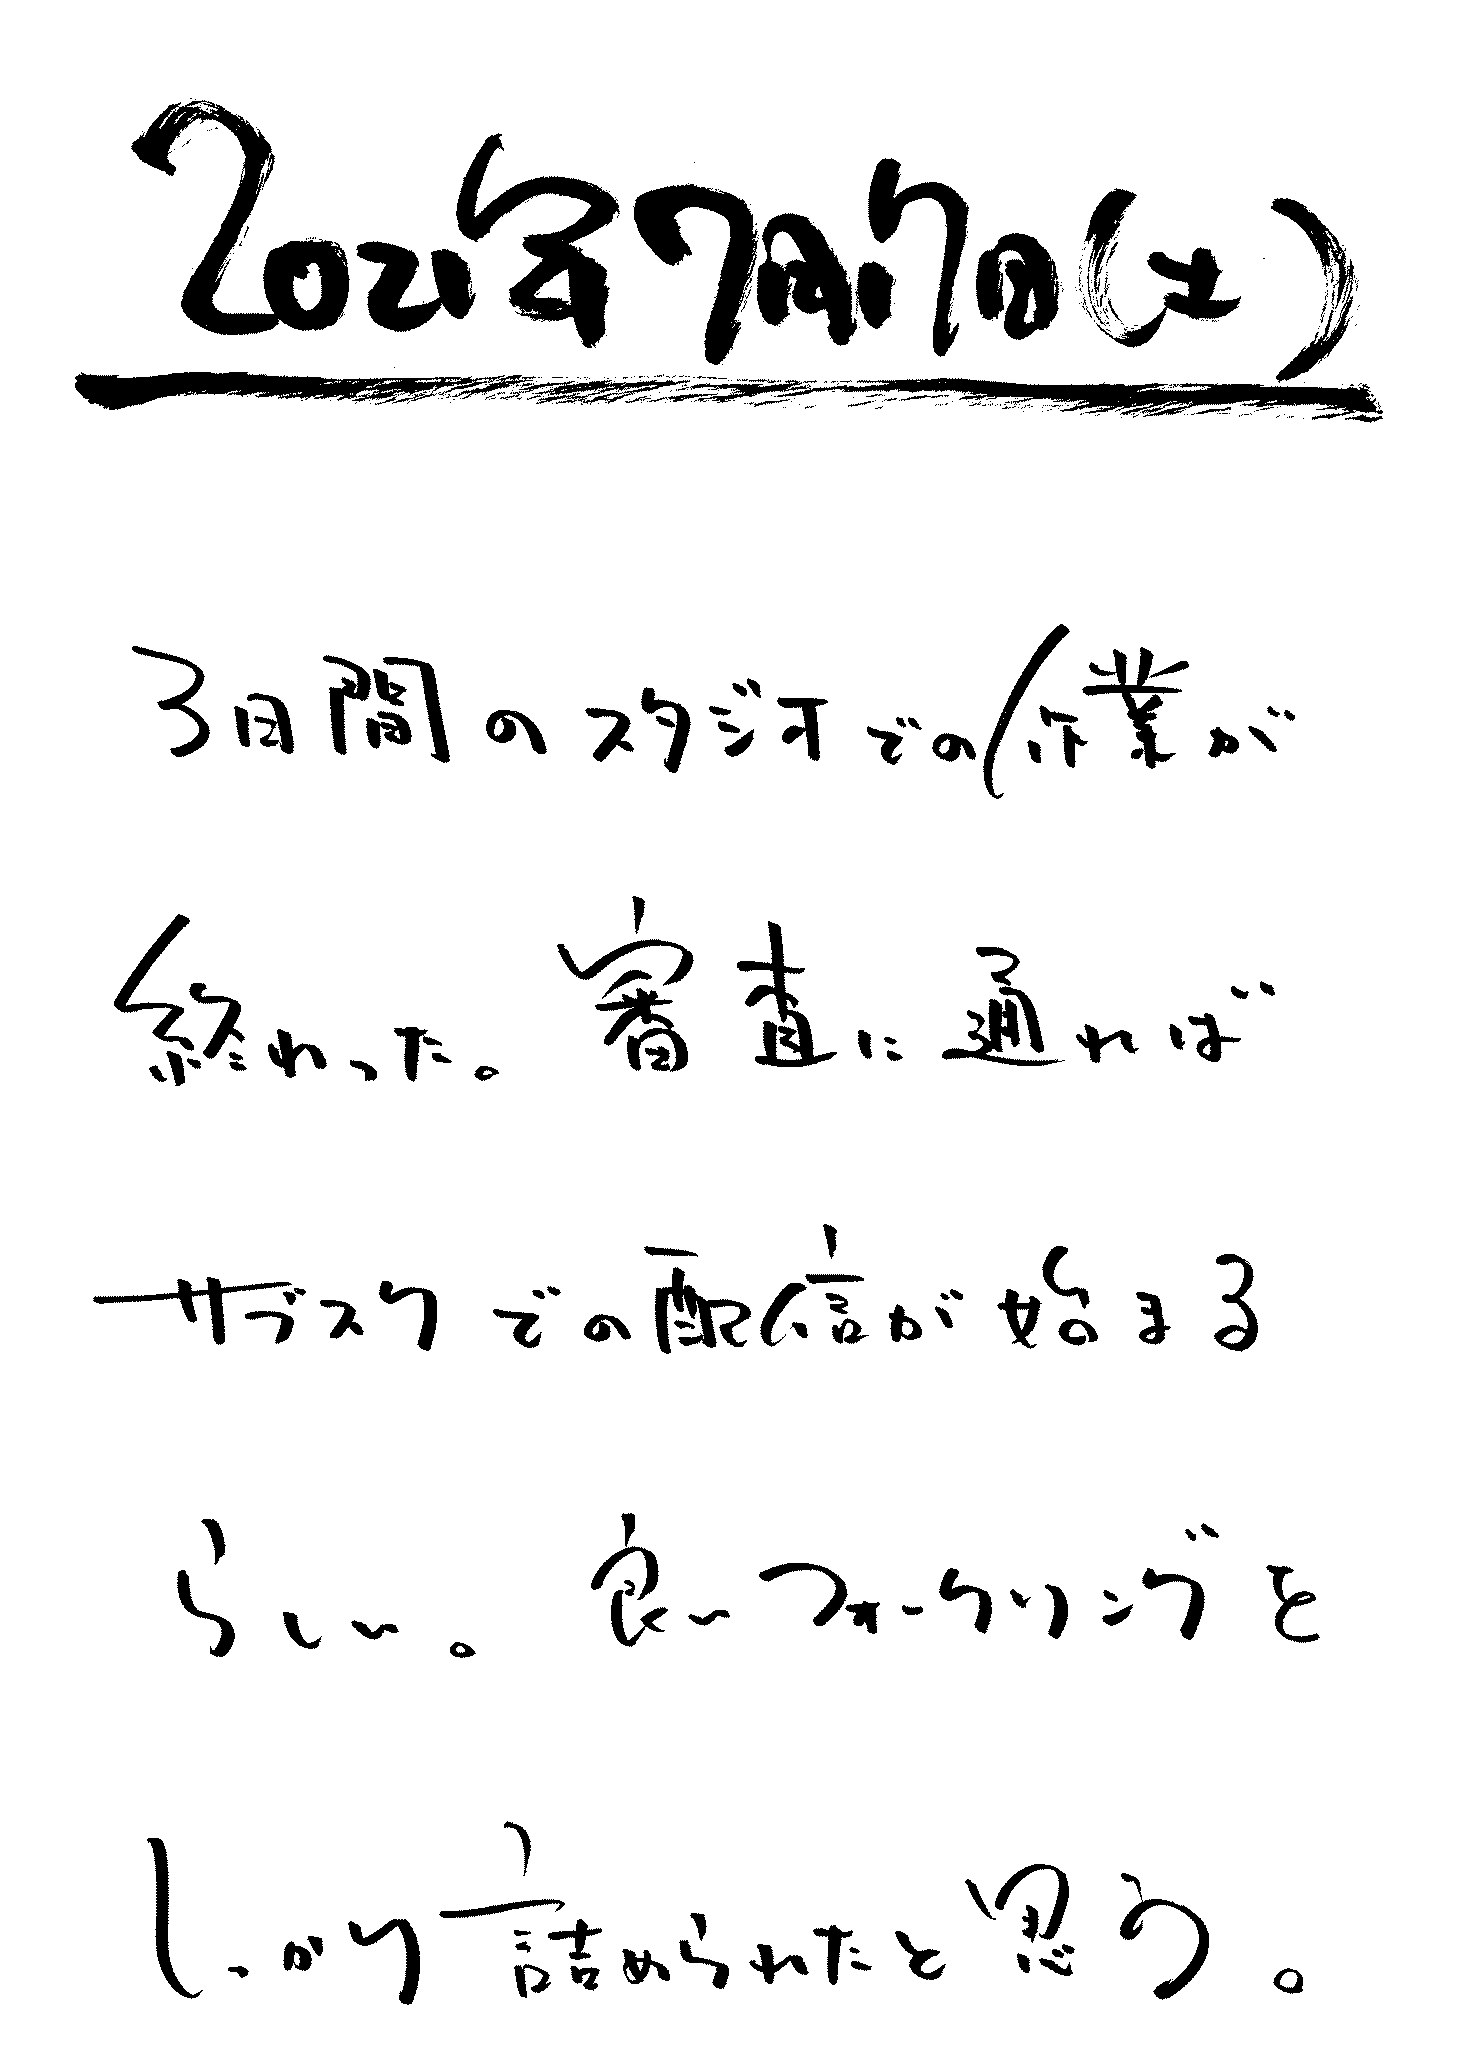 2021年7月17日(土)
3日間のスタジオでの作業が
終わった。審査に通れば
サブスクでの配信が始まる
らしい。良いフォークソングを
しっかり詰められたと思う。